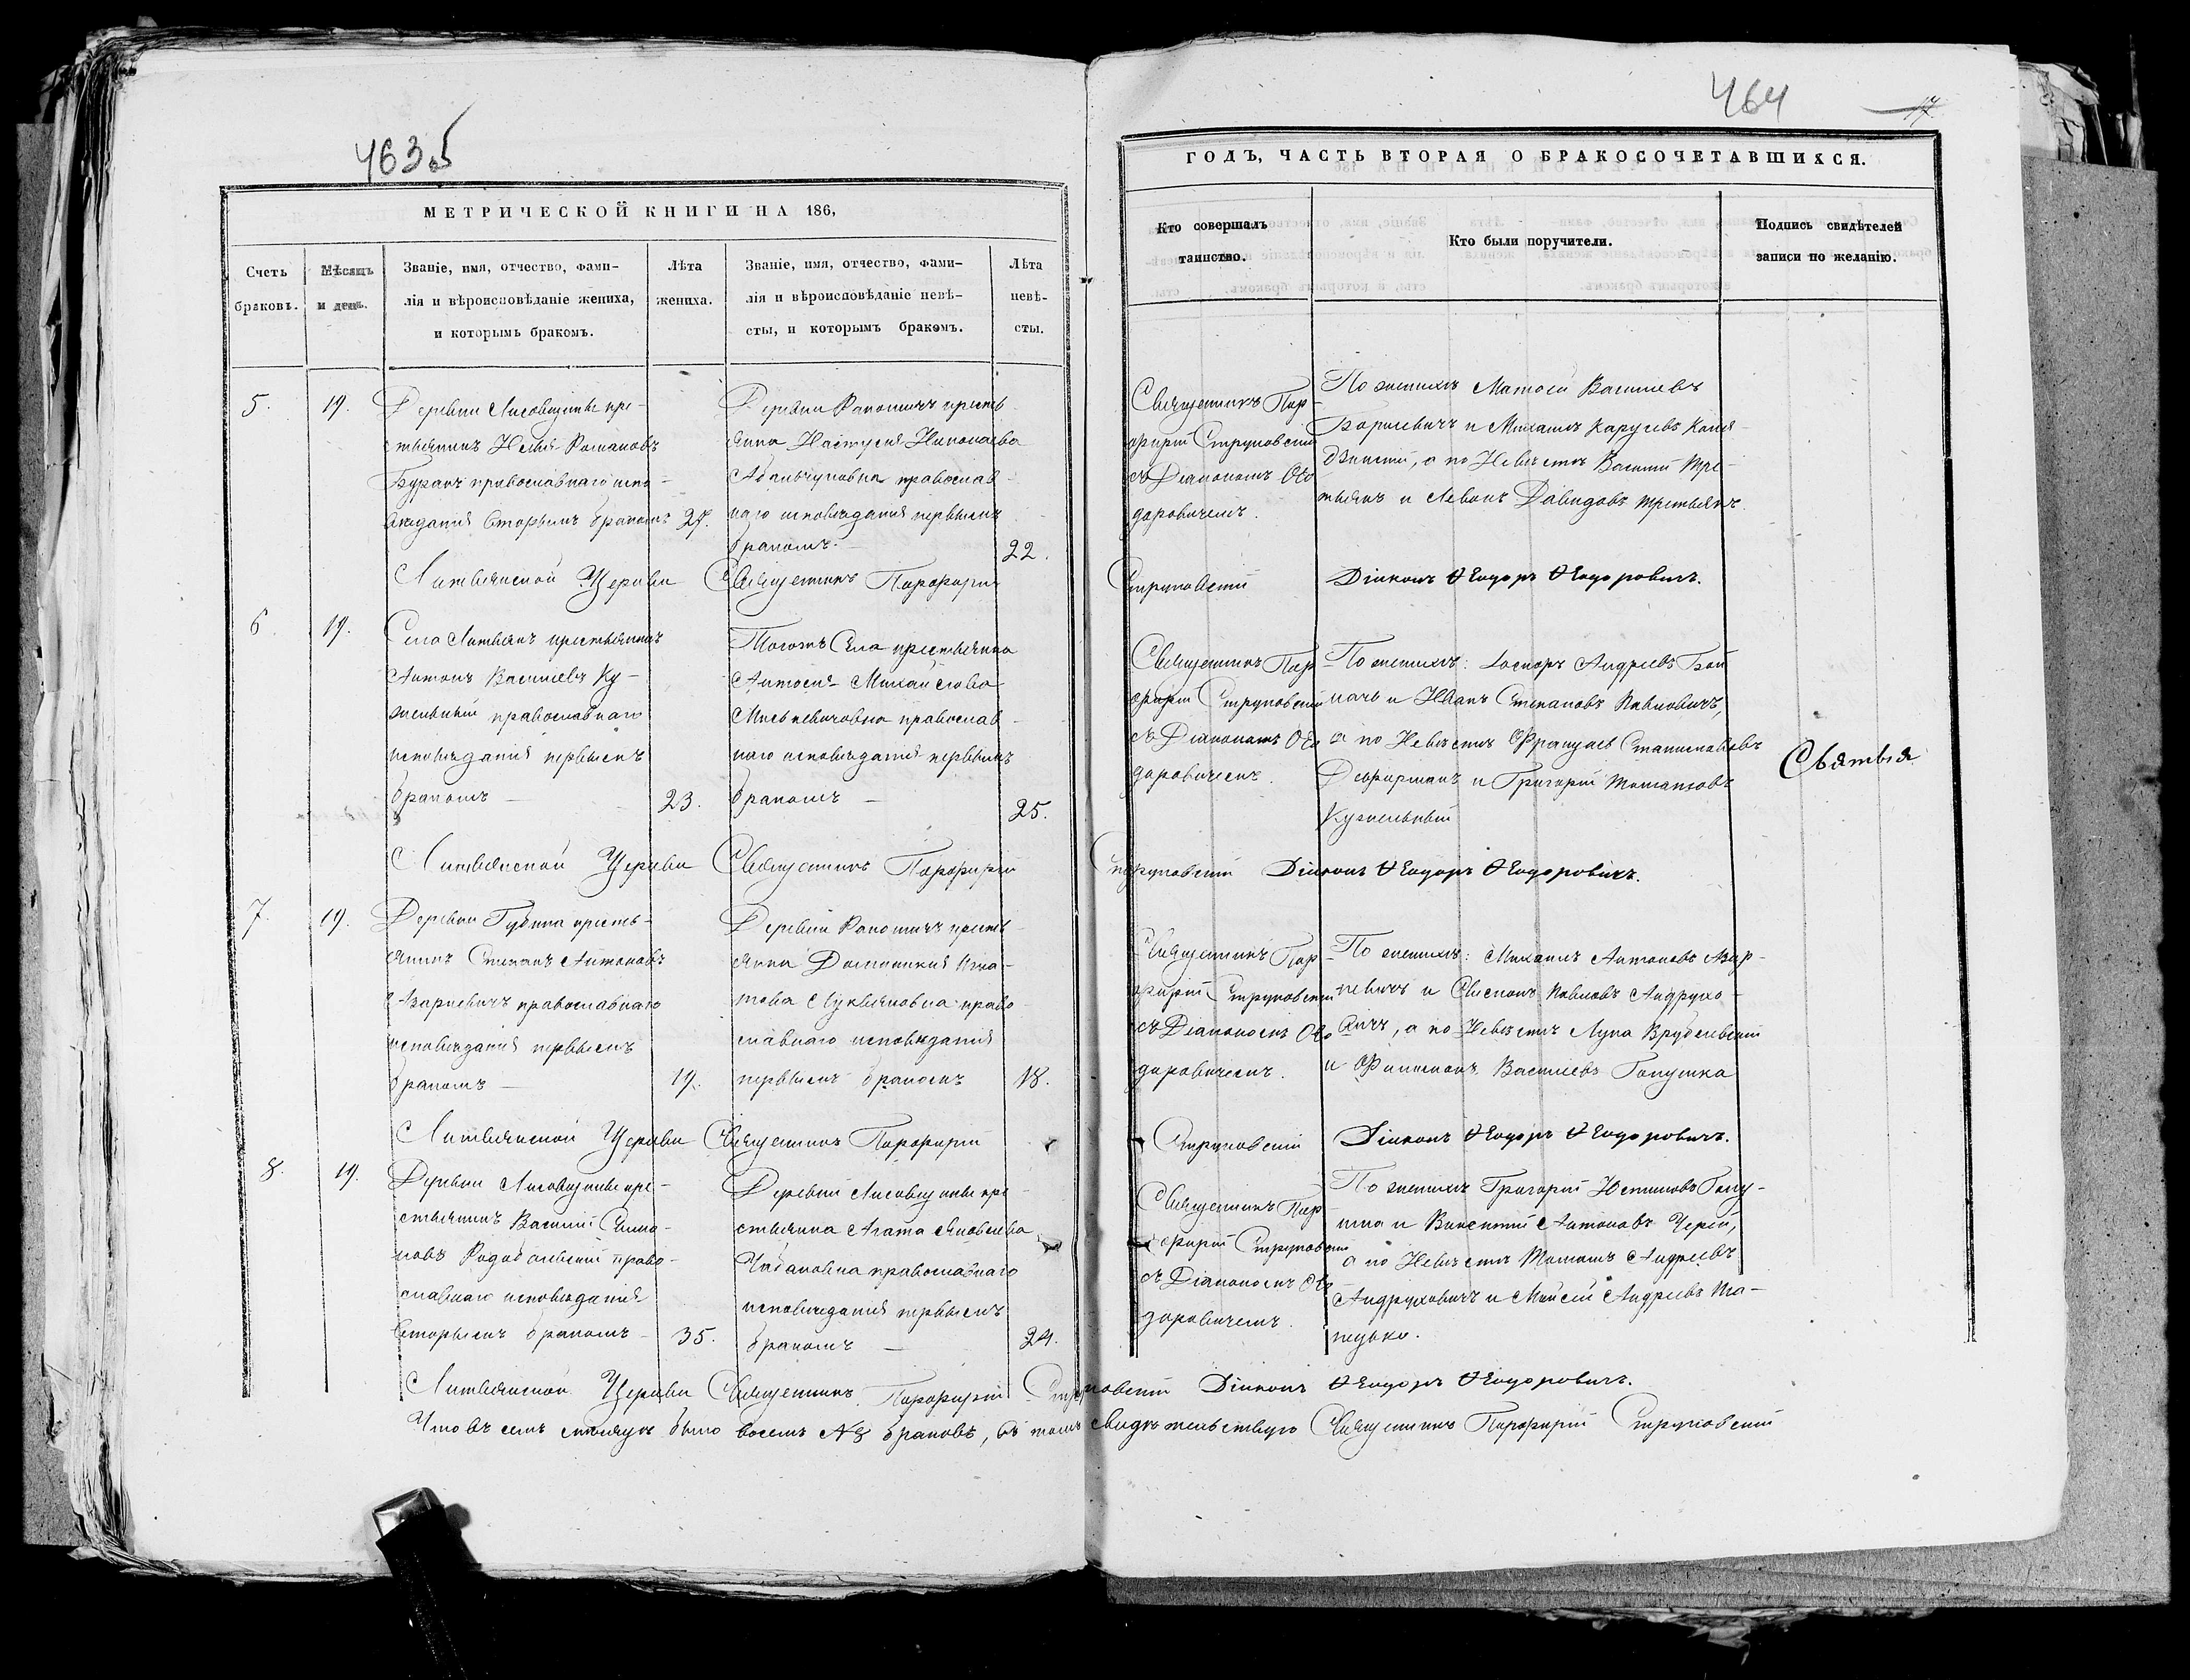 463 об
464
17
МЕТРИЧЕСКОЙ КНИГИ НА 186,
Счетъ
браковъ.
Мѣсяцъ
и день.
Званіе, имя, отчество, фами-
лія и вѣроисповѣданіе жениха,
и которымъ бракомъ.
Лѣта
жениха.
Званіе, имя, отчество, фами-
лія и вѣроисповѣданіе невѣ-
сты, и которымъ бракомъ.
Лѣта
невѣ-
сты.
ГОДЪ, ЧАСТЬ ВТОРАЯ О БРАКОСОЧЕТАВШИХСЯ.
Кто совершалъ
таинство.
Кто были поручители.
Подпись свидѣтелей
записи по желанію.
5.
19.
Деревни Лисовщины кре-
стьянинъ Романовъ
православнаго испо-
вѣданія вторымъ бракомъ
27.
Деревни Рапошичъ кресть
янка Настусія Николаева
православ
наго исповѣданія первымъ
бракомъ.
22.
Священникъ Пор-
фирій Струковскій
съ Діакономъ Ѳео
доровичемъ.
По женихѣ Матѳей Васильевъ
Борисевичъ и Михаилъ
а по Невѣстѣ Василій Тре-
тьякъ и Левонъ Давидовъ Третьякъ.
Литвянской Церкви Священникъ Порфирій Струковскій Діяконъ Ѳеодоръ Ѳеодоровичъ.
6.
19.
Села Литвянъ крестьянинъ
Антонъ Васильевъ Ку-
жельный православнаго
исповѣданія первымъ
бракомъ —
23.
Тогожъ Села крестьянка
Антося Михайлова
православ-
наго исповѣданія первымъ
бракомъ —
25.
Священникъ Пор-
фирій Струковскій
съ Діакономъ Ѳео
доровичемъ.
По женихѣ: Андреевъ
и Иванъ Степановъ Павловичъ,
а по Невѣстѣ Францъ Станиславовъ
и Григорій
Кужельный
Святыя
Литвянской Церкви Священникъ Порфирій Струковскій Діяконъ Ѳеодоръ Ѳеодоровичъ.
7.
19.
Деревни Губина кресть-
янинъ Степанъ Антоновъ
Азаркевичъ православнаго
исповѣданія первымъ
бракомъ —
19.
Деревни Рапошичъ кресть
янка Доминикія Игна-
това Лукьяновна право
славнаго исповѣданія
первымъ бракомъ
18.
Священникъ Пор-
фирій Струковскій
съ Діакономъ Ѳео
доровичемъ.
По женихѣ: Михаилъ Антоновъ Азар-
кевичъ и Павловъ Андрухо-
вичъ, а по Невѣстѣ Лука Врублевскій
и Филимонъ Васильевъ Гапушка
Литвянской Церкви Священникъ Порфирій Струковскій Діяконъ Ѳеодоръ Ѳеодоровичъ.
8.
19.
Деревни Лисовщины кре-
стьянинъ Василій Симо-
новъ право-
славнаго исповѣданія
вторымъ бракомъ —
35.
Деревни Лисовщины кре-
стьянка Агата Яковлева
Чабановна православнаго
исповѣданія первымъ
бракомъ —
24.
Священникъ Пор
фирій Струковскій
съ Діакономъ Ѳео
доровичемъ.
По женихѣ Григорій Гапу-
шка и Викентій Антоновъ
а по Невѣстѣ Томашъ Андреевъ
Андруховичъ и Моисей Андреевъ

Литвянской Церкви Священникъ Порфирій Струковскій Діяконъ Ѳеодоръ Ѳеодоровичъ.
Что въ семъ мѣсяцѣ было восемь №8 браковъ, въ томъ свидѣтельствую Священникъ Порфирій Струковскій